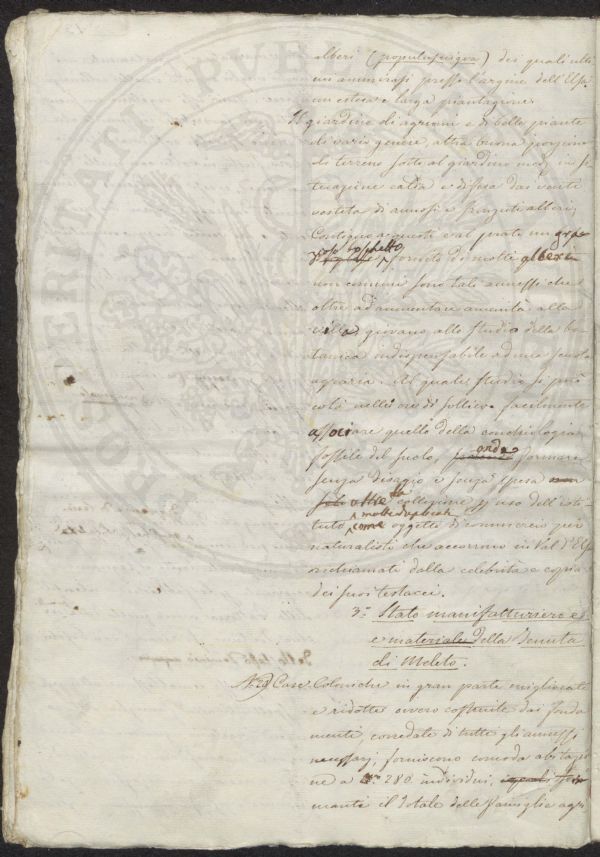 alberi (populus nigra) dei quali ulti
mi ammirasi presso l'argine dell'Elsa
un estesa e larga piantagione.
Il giardino di agrumi e di belle piante
di vario genere, altra buona porzione
di terreno sotto al giardino med.º in si
tuazione calda e difesa dai venti
vestita di annosi e fronzuti alberi,
Contiguo a questi e al prato un gra
zioso boschetto fornito di molti alberi
non comuni sono tali annessi che
oltre ad aumentare amenità alla
villa, giovano allo studio della bo
tanica indispensabile ad una scuola
agraria. Al quale studio si può
colà nelle ore di sollievo facilmente
associare quello della conchiologia
fossile del suolo, onde formare
senza disagio e senza spesa non
solo oltre collezione per uso dell'isti
tuto molte duplicate come oggetto di commercio pei
naturalisti che accorrono in Val d'Elsa
richiamati dalla celebrità e copia
dei suoi testacei.
3º Stato manifatturiere ed
e materiale della Tenuta
di Meleto.
Case Coloniche in gran parte migliorate
e ridotte ovvero costruite dai fonda
menti corredate di tutti gli annessi
necessarj, forniscono comoda abitazio
ne a 280 individui,
manti il totale delle famiglie agri